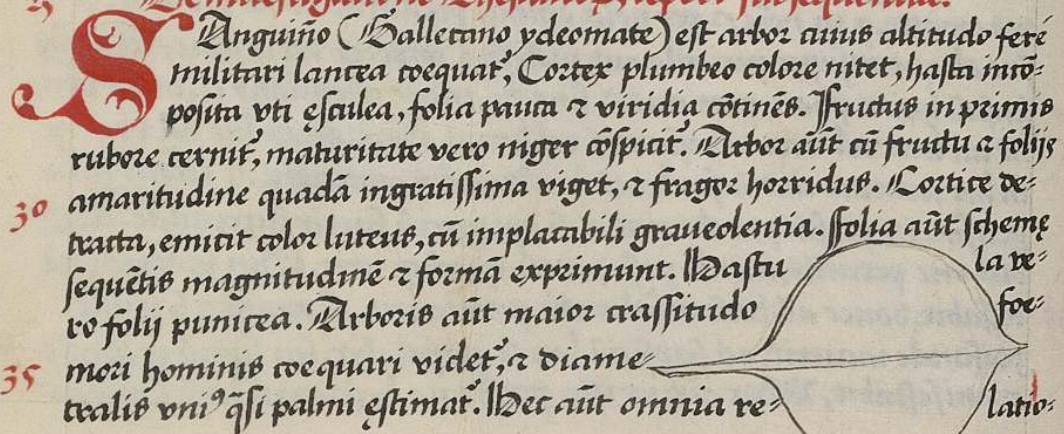 SAnguiño (Gallecano ydeomate) est arbor cuius altitudo ferè
militari lancea coequat̃, Cortex plumbeo colore nitet, hasta incō-
posita vti ęsculea, folia pauca ⁊ viridia cōtinēs. Fructus in primis
rubore cernit̃, maturitate vero niger cōspicit̃. Arbor aūt cū fructu ⁊ folijs
amaritudine quadā ingratissima viget, ⁊ fragor horridus. Cortice de-
30
tracta, emicit color luteus, cū implacabili graueolentia. Folia aūt schemę
sequētis magnitudinē ⁊ formā exprimunt. Hastu la ve-
ro folij punicea. Arboris aūt maior crassitudo foe-
35
mori hominis coequari videt̃, ⁊ diame-
tralis vniꝰ q̄si palmi ęstimat̃. Hec aūt omnia re- latio-